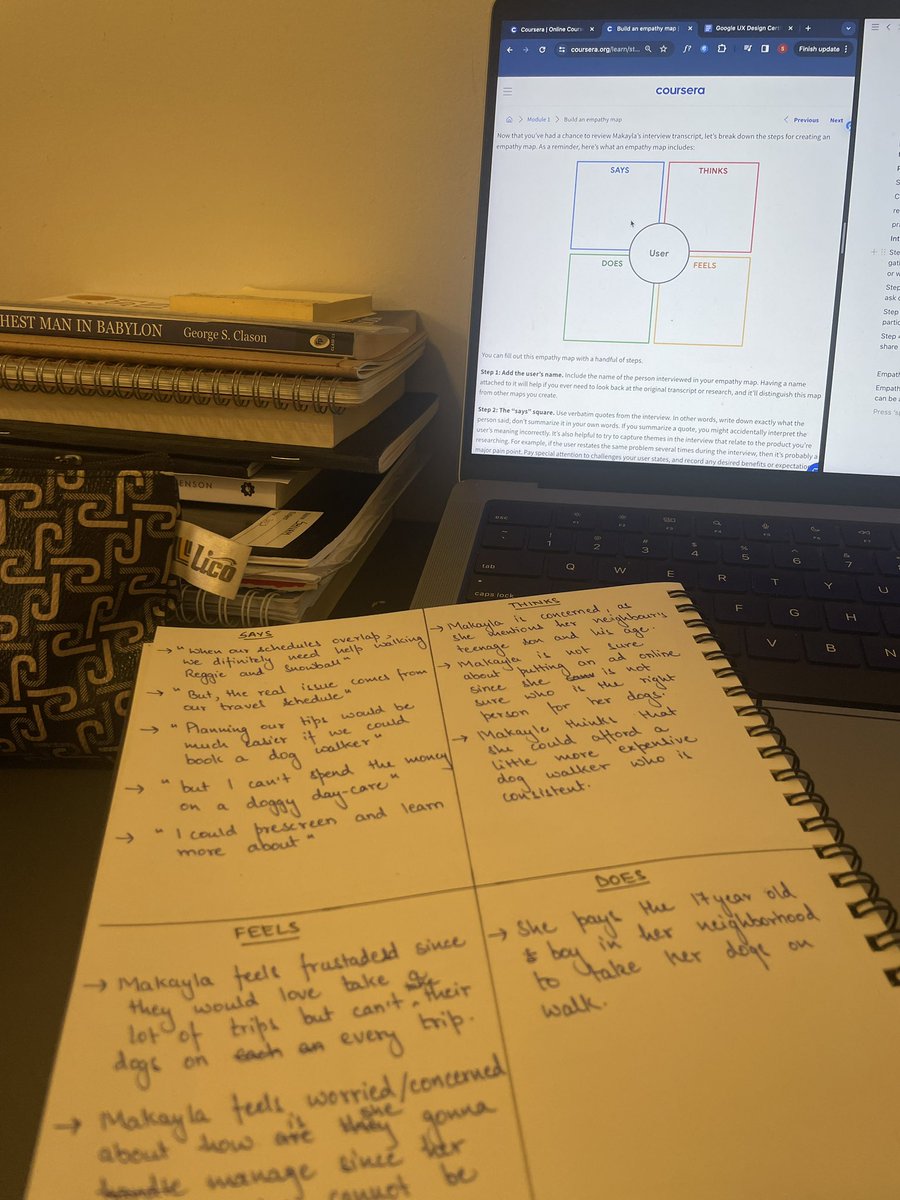 Coursera | Online Cours
Build an empathy map |
Google UX Design Cert
coursera.org/learn/st...
Finish update
coursera
Module 1 > Build an empathy map
Previous
Next
Now that you've had a chance to review Makayla's interview transcript, let's break down the steps for creating an
empathy map. As a reminder, here's what an empathy map includes:
SAYS
THINKS
User
DOES
FEELS
You can fill out this empathy map with a handful of steps.
Step 1: Add the user's name. Include the name of the person interviewed in your empathy map. Having a name
attached to it will help if you ever need to look back at the original transcript or research, and it'll distinguish this map
from other maps you create.
Step 2: The "says" square. Use verbatim quotes from the interview. In other words, write down exactly what the
person said, don't summarize it in your own words. If you summarize a quote, you might accidentally interpret the
user's meaning incorrectly. It's also helpful to try to capture themes in the interview that relate to the product you're
researching. For example, if the user restates the same problem several times during the interview, then it's probably a
major pain point. Pay special attention to challenges your user states, and record any desired benefits or expectation
Int
Ste
gati
or w
Step
ask c
Step
partic
Step 4
share
Empath
Empath
can be a
Press 's
HEST MAN IN BABYLON George S. Clason
ENSON
Lico
esc
tab
caps lock
Q W E R T Y U
F G H
V B N
SAYS
→ "When our schedules overlap,
we difinitely need help walking
Reggie and Snowball"
→ "But, the real issue comes from
our travel schedule"
→ "Planning our tips would be
much easier if we could
book a dog walker"
→ "but I can't spend the money
on a doggy day-care"
→ "I could prescreen and learn
more about"
THINKS
→ Makayla is concerned, as
she mentions her neighbour's
teenage son and his age.
→ Makayla is not sure
about putting an ad online
since she is not
sure who is the right
person for her dogs.
→ Makayle thinks that
she could afford a
little more expensive
dog walker who is
consistent.
FEELS
→ Makayla feels frustaded since
they would love take a
lot of trips but can't their
dogs on each an every trip.
→ Makayla feels worried/concerned
about how is she gonna
manage since her
cannot be
DOES
→ She pays the 17 year old
boy in her neighborhood
to take her dogs on
walk.